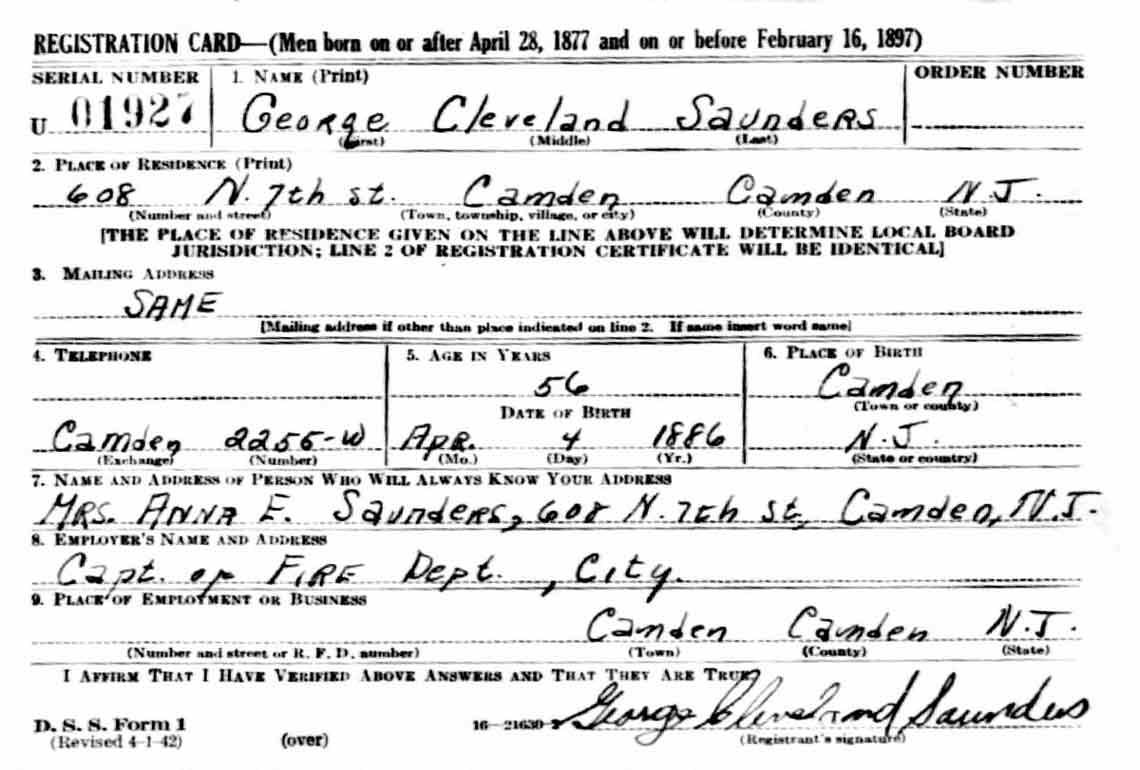 REGISTRATION CARD—(Men born on or after April 28, 1877 and on or before February 16, 1897)
SERIAL NUMBER 1. NAME (Print) ORDER NUMBER
U 01927 George Cleveland Saunders
(First) (Middle) (Last)
2. PLACE OF RESIDENCE (Print)
608 N. 7th st. Camden Camden N.J.
(Number and street) (Town, township, village, or city) (County) (State)
[THE PLACE OF RESIDENCE GIVEN ON THE LINE ABOVE WILL DETERMINE LOCAL BOARD
JURISDICTION; LINE 2 OF REGISTRATION CERTIFICATE WILL BE IDENTICAL]
3. MAILING ADDRESS
SAME
[Mailing address if other than place indicated on line 2. If same insert word same]
4. TELEPHONE 5. AGE IN YEARS 6. PLACE OF BIRTH
56 Camden
DATE OF BIRTH (Town or county)
Camden 2255-W Apr. 4 1886 N.J.
(Exchange) (Number) (Mo.) (Day) (Yr.) (State or country)
7. NAME AND ADDRESS OF PERSON WHO WILL ALWAYS KNOW YOUR ADDRESS
MRS. ANNA E. Saunders, 608 N. 7th st, Camden, N.J.
8. EMPLOYER'S NAME AND ADDRESS
Capt. of FIRE Dept., City.
9. PLACE OF EMPLOYMENT OR BUSINESS
Camden Camden N.J.
(Number and street or R. F. D. number) (Town) (County) (State)
I AFFIRM THAT I HAVE VERIFIED ABOVE ANSWERS AND THAT THEY ARE TRUE
D. S. S. Form 1 16—21630-2 George Cleveland Saunders
(Revised 4-1-42) (over) (Registrant's signature)